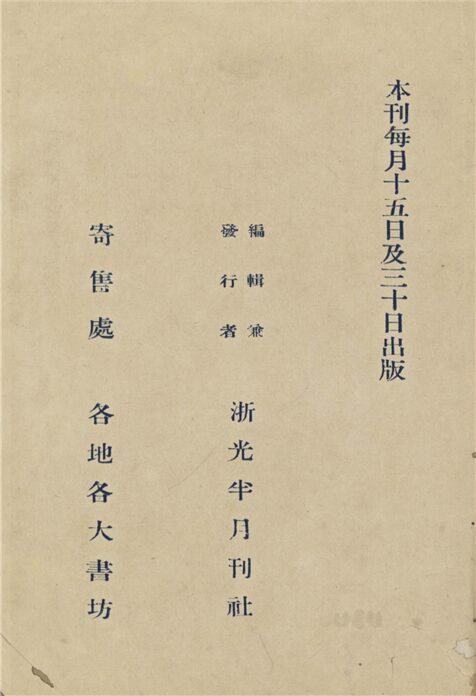 本刊每月十五日及三十日出版
編輯兼
發行者
浙光半月刊社
寄售處 各地各大書坊